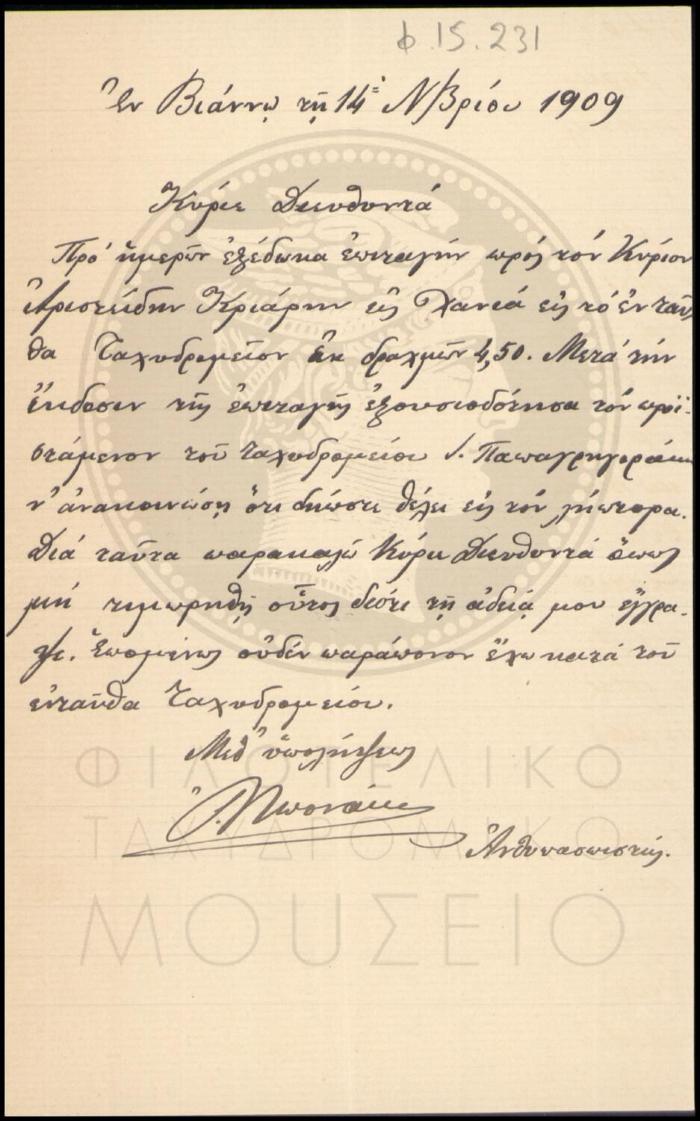 φ.15.231
Ἐν Βιάννῳ τῇ 14ῃ Νβρίου 1909
Κύριε Διευθυντά
Πρό ἡμερῶν ἐξέδωκα ἐπιταγήν πρός τόν Κύριον
Ἀριστείδην Κριάρην εἰς Χανιά εἰς τό ἐνταῦ
θα Ταχυδρομεῖον ἐκ δραχμῶν 4,50. Μετά τήν
ἔκδοσιν τῆς ἐπιταγῆς ἐξουσιοδότησα τόν προϊ-
στάμενον τοῦ ταχυδρομείου Παπαγρηγοράκη
ν' ἀνακοινώσῃ ὅτι θέλει εἰς τόν λήπτορα.
Διά ταῦτα παρακαλῶ Κύριε Διευθυντά ὅπως
μή τιμωρηθῇ οὗτος διότι τῇ ἀδείᾳ μου ἔγρα-
ψε. Ἑπομένως οὐδέν παράπονον ἔχω κατά τοῦ
ἐνταῦθα Ταχυδρομείου.
Μεθ' ὑπολήψεως
Ἀνθυπασπιστής.
ΦΙΛΟΤΕΛΙΚΟ
ΤΑΧΥΔΡΟΜΙΚΟ
ΜΟΥΣΕΙΟ